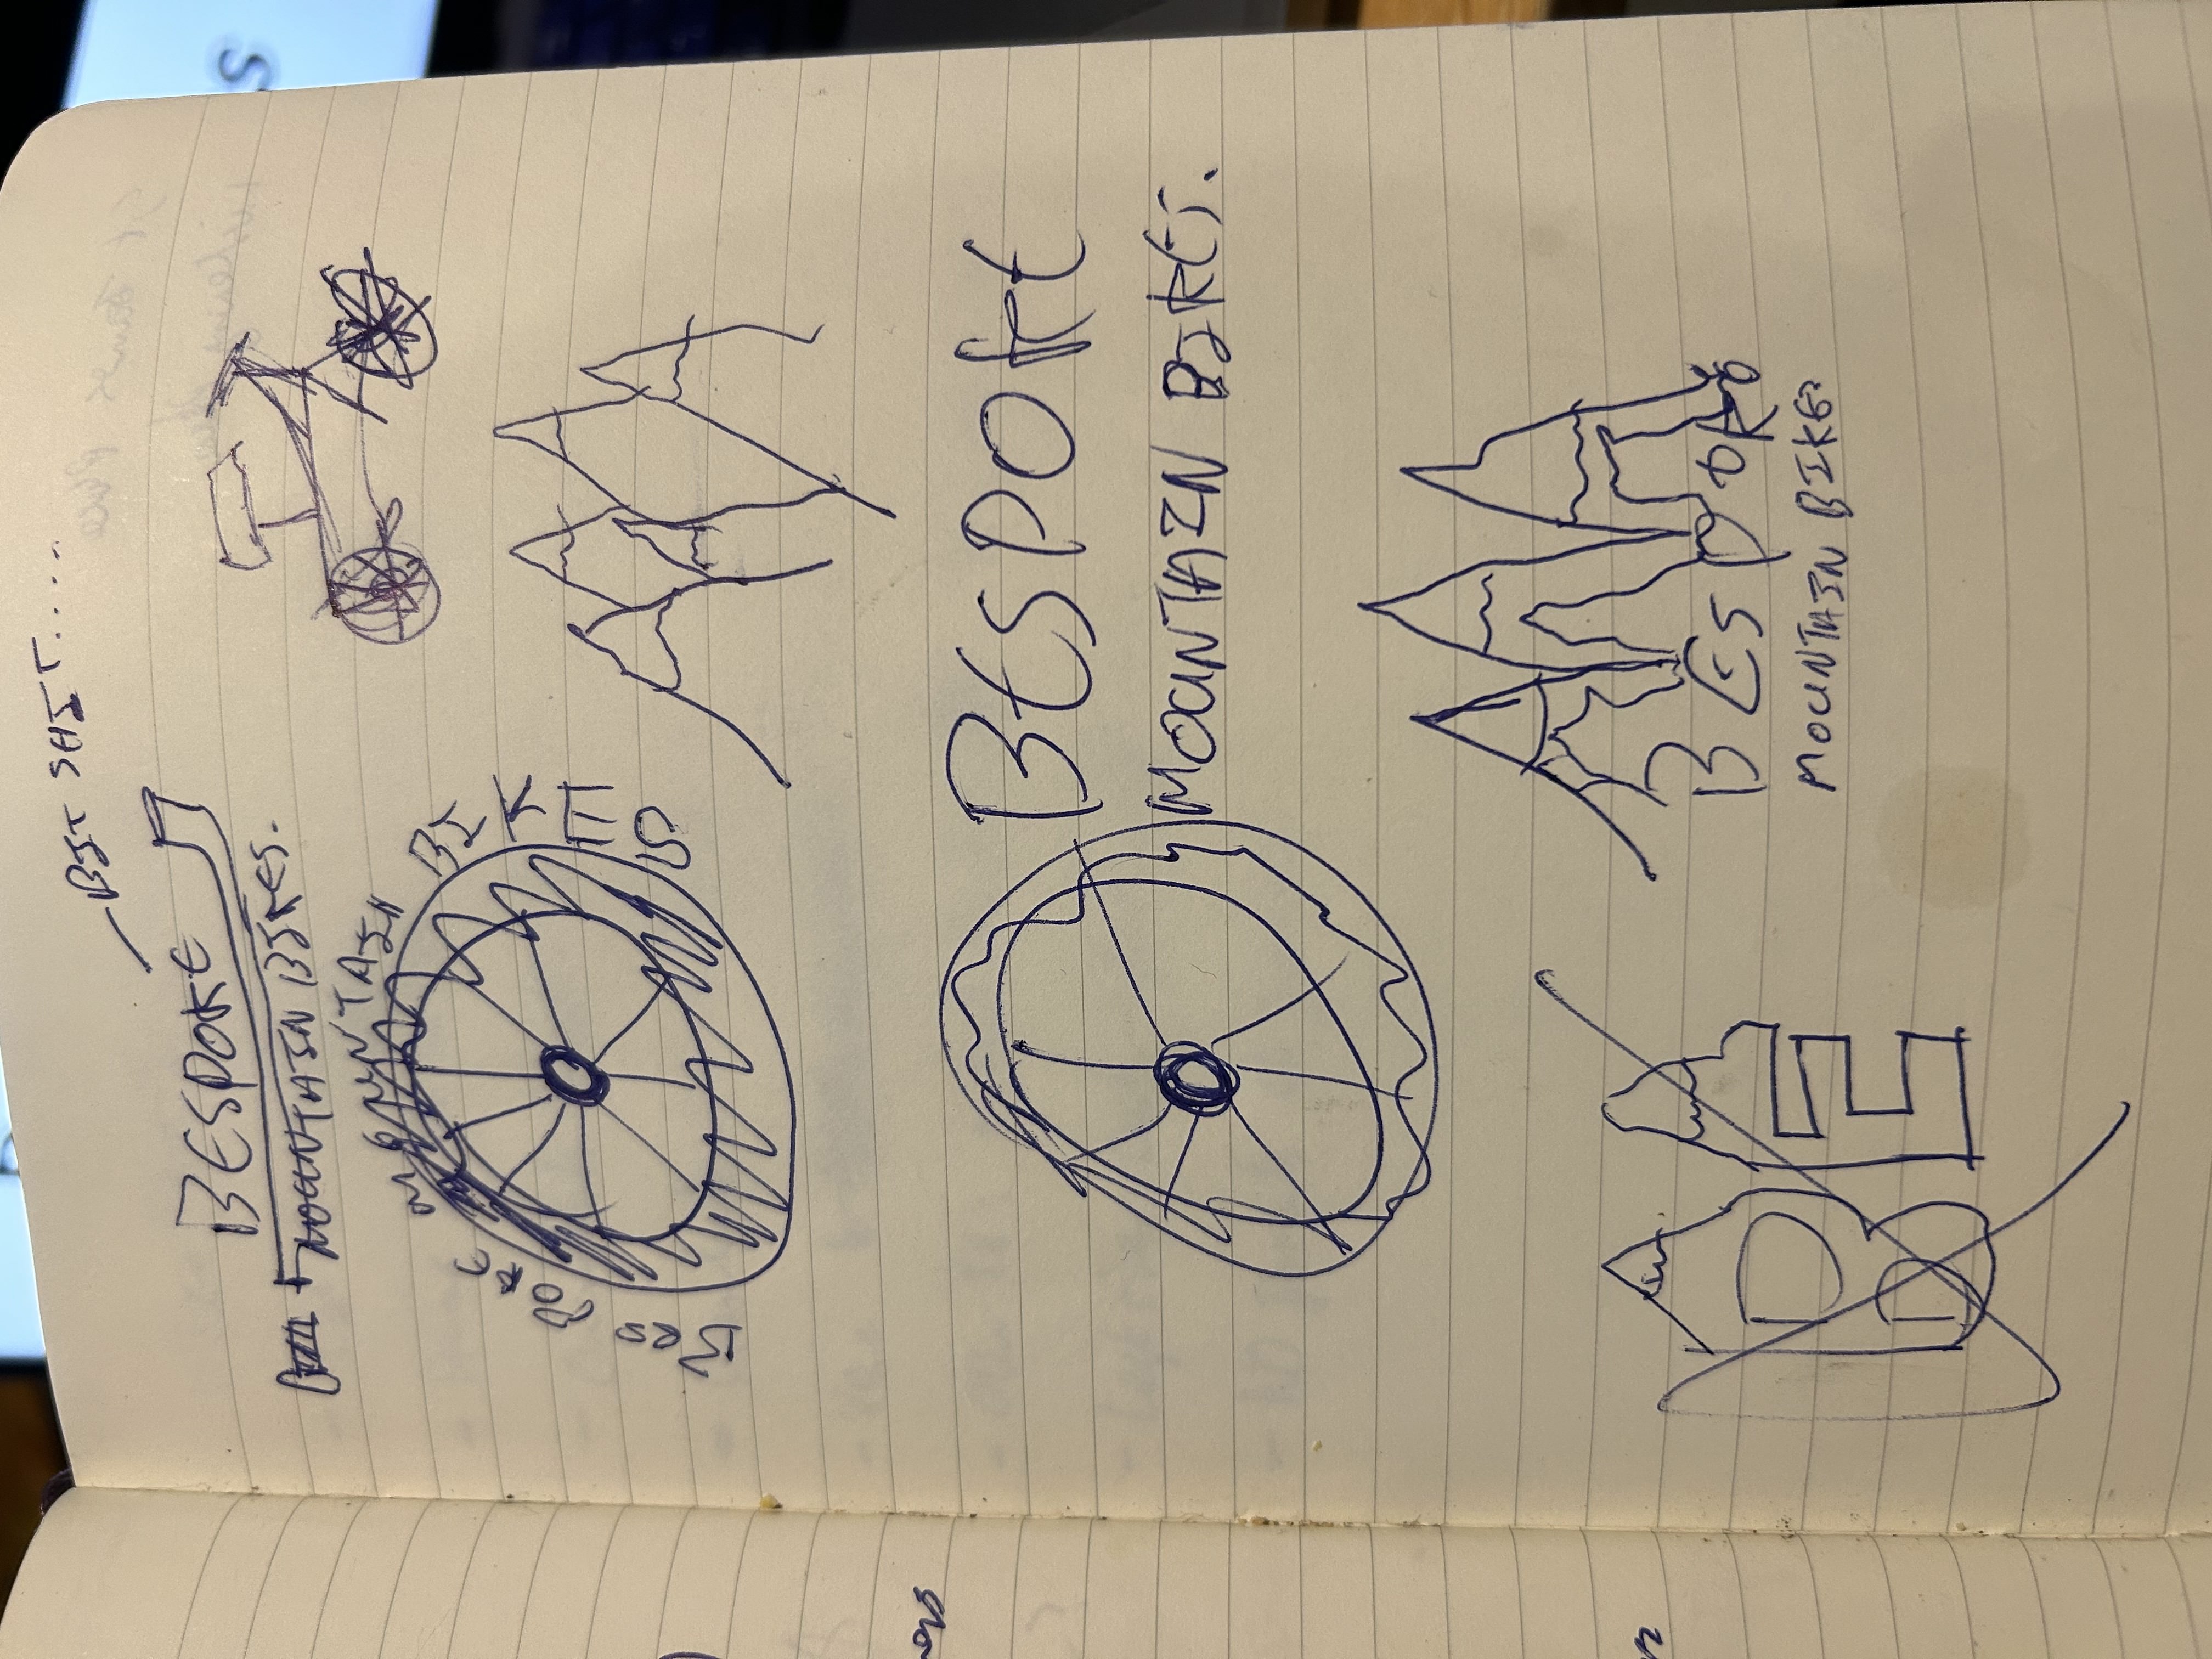 BIT SHIT.....
BESPOKE
MOUNTAIN BIKES.
BESPOKE MOUNTAIN BIKES
BESPOKE
MOUNTAIN BIKES.
BE
BESPOKE
MOUNTAIN BIKES